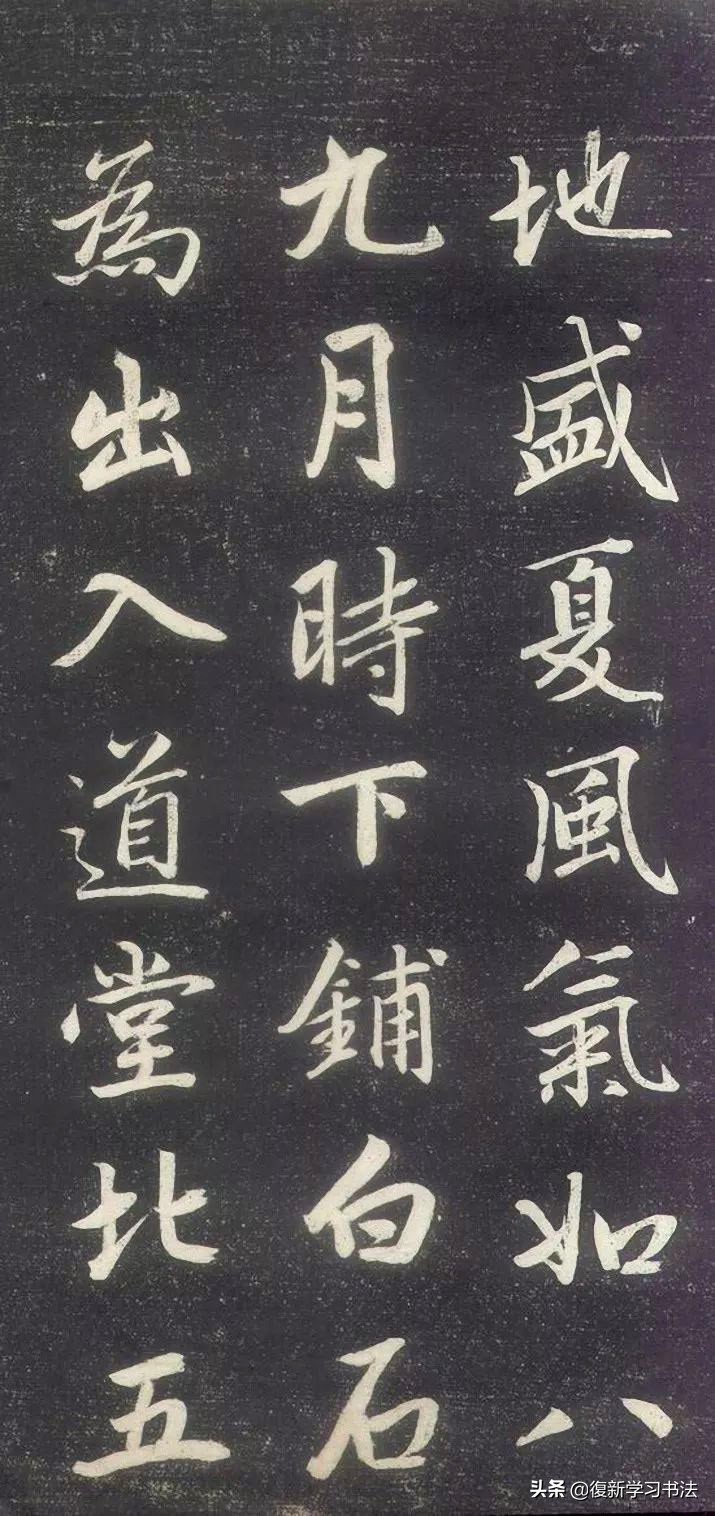 地盛夏風氣如八
九月時下鋪白石
為出入道堂北五
头条@復新学习书法